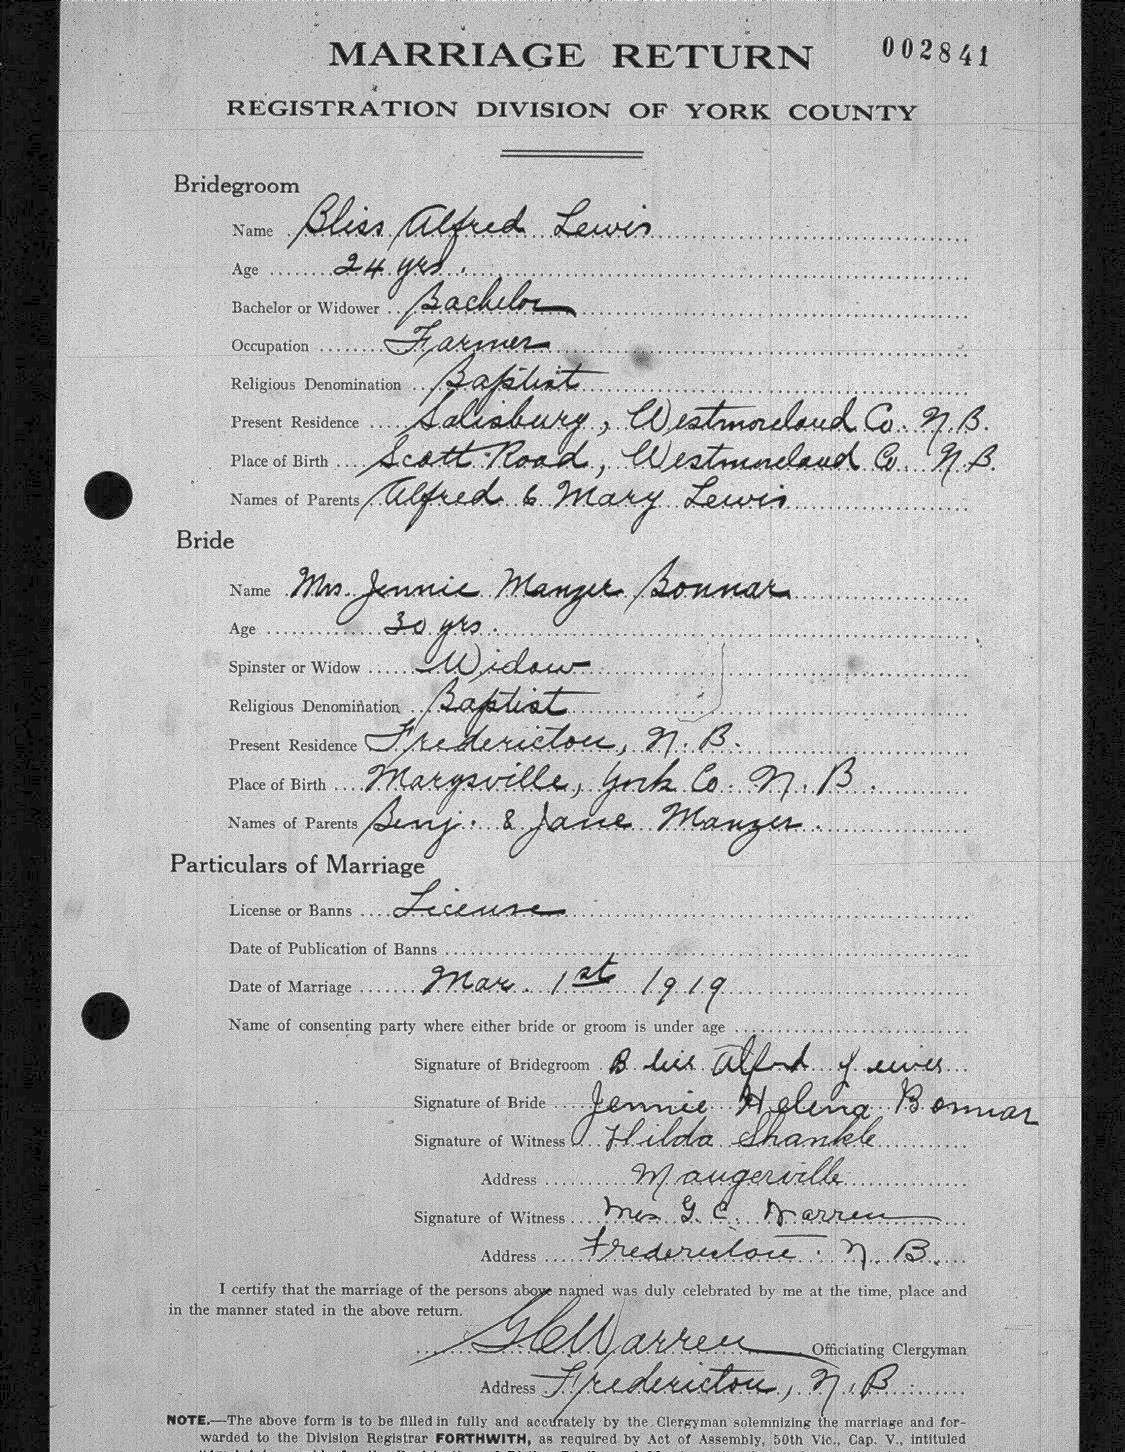 MARRIAGE RETURN 002841
REGISTRATION DIVISION OF YORK COUNTY
Bridegroom
Name Bliss Alfred Lewis
Age 24 yrs.
Bachelor or Widower Bachelor
Occupation Farmer
Religious Denomination Baptist
Present Residence Salisbury, Westmoreland Co. N.B.
Place of Birth Scott Road, Westmoreland Co. N.B.
Names of Parents Alfred & Mary Lewis
Bride
Name Mrs. Jennie Manzer Bonnar
Age 30 yrs.
Spinster or Widow Widow
Religious Denomination Baptist
Present Residence Fredericton, N.B.
Place of Birth Marysville, York Co. N.B.
Names of Parents Benj. & Jane Manzer.
Particulars of Marriage
License or Banns License
Date of Publication of Banns
Date of Marriage Mar. 1st 1919
Name of consenting party where either bride or groom is under age
Signature of Bridegroom Bliss Alfred Lewis
Signature of Bride Jennie Helena Bonnar
Signature of Witness Hilda Shankle
Address Maugerville
Signature of Witness Mrs G. C. Warren
Address Fredericton. N.B.
I certify that the marriage of the persons above named was duly celebrated by me at the time, place and
in the manner stated in the above return.
G C Warren Officiating Clergyman
Address Fredericton, N.B.
NOTE.—The above form is to be filled in fully and accurately by the Clergyman solemnizing the marriage and for-
warded to the Division Registrar FORTHWITH, as required by Act of Assembly, 50th Vic., Cap. V., intituled